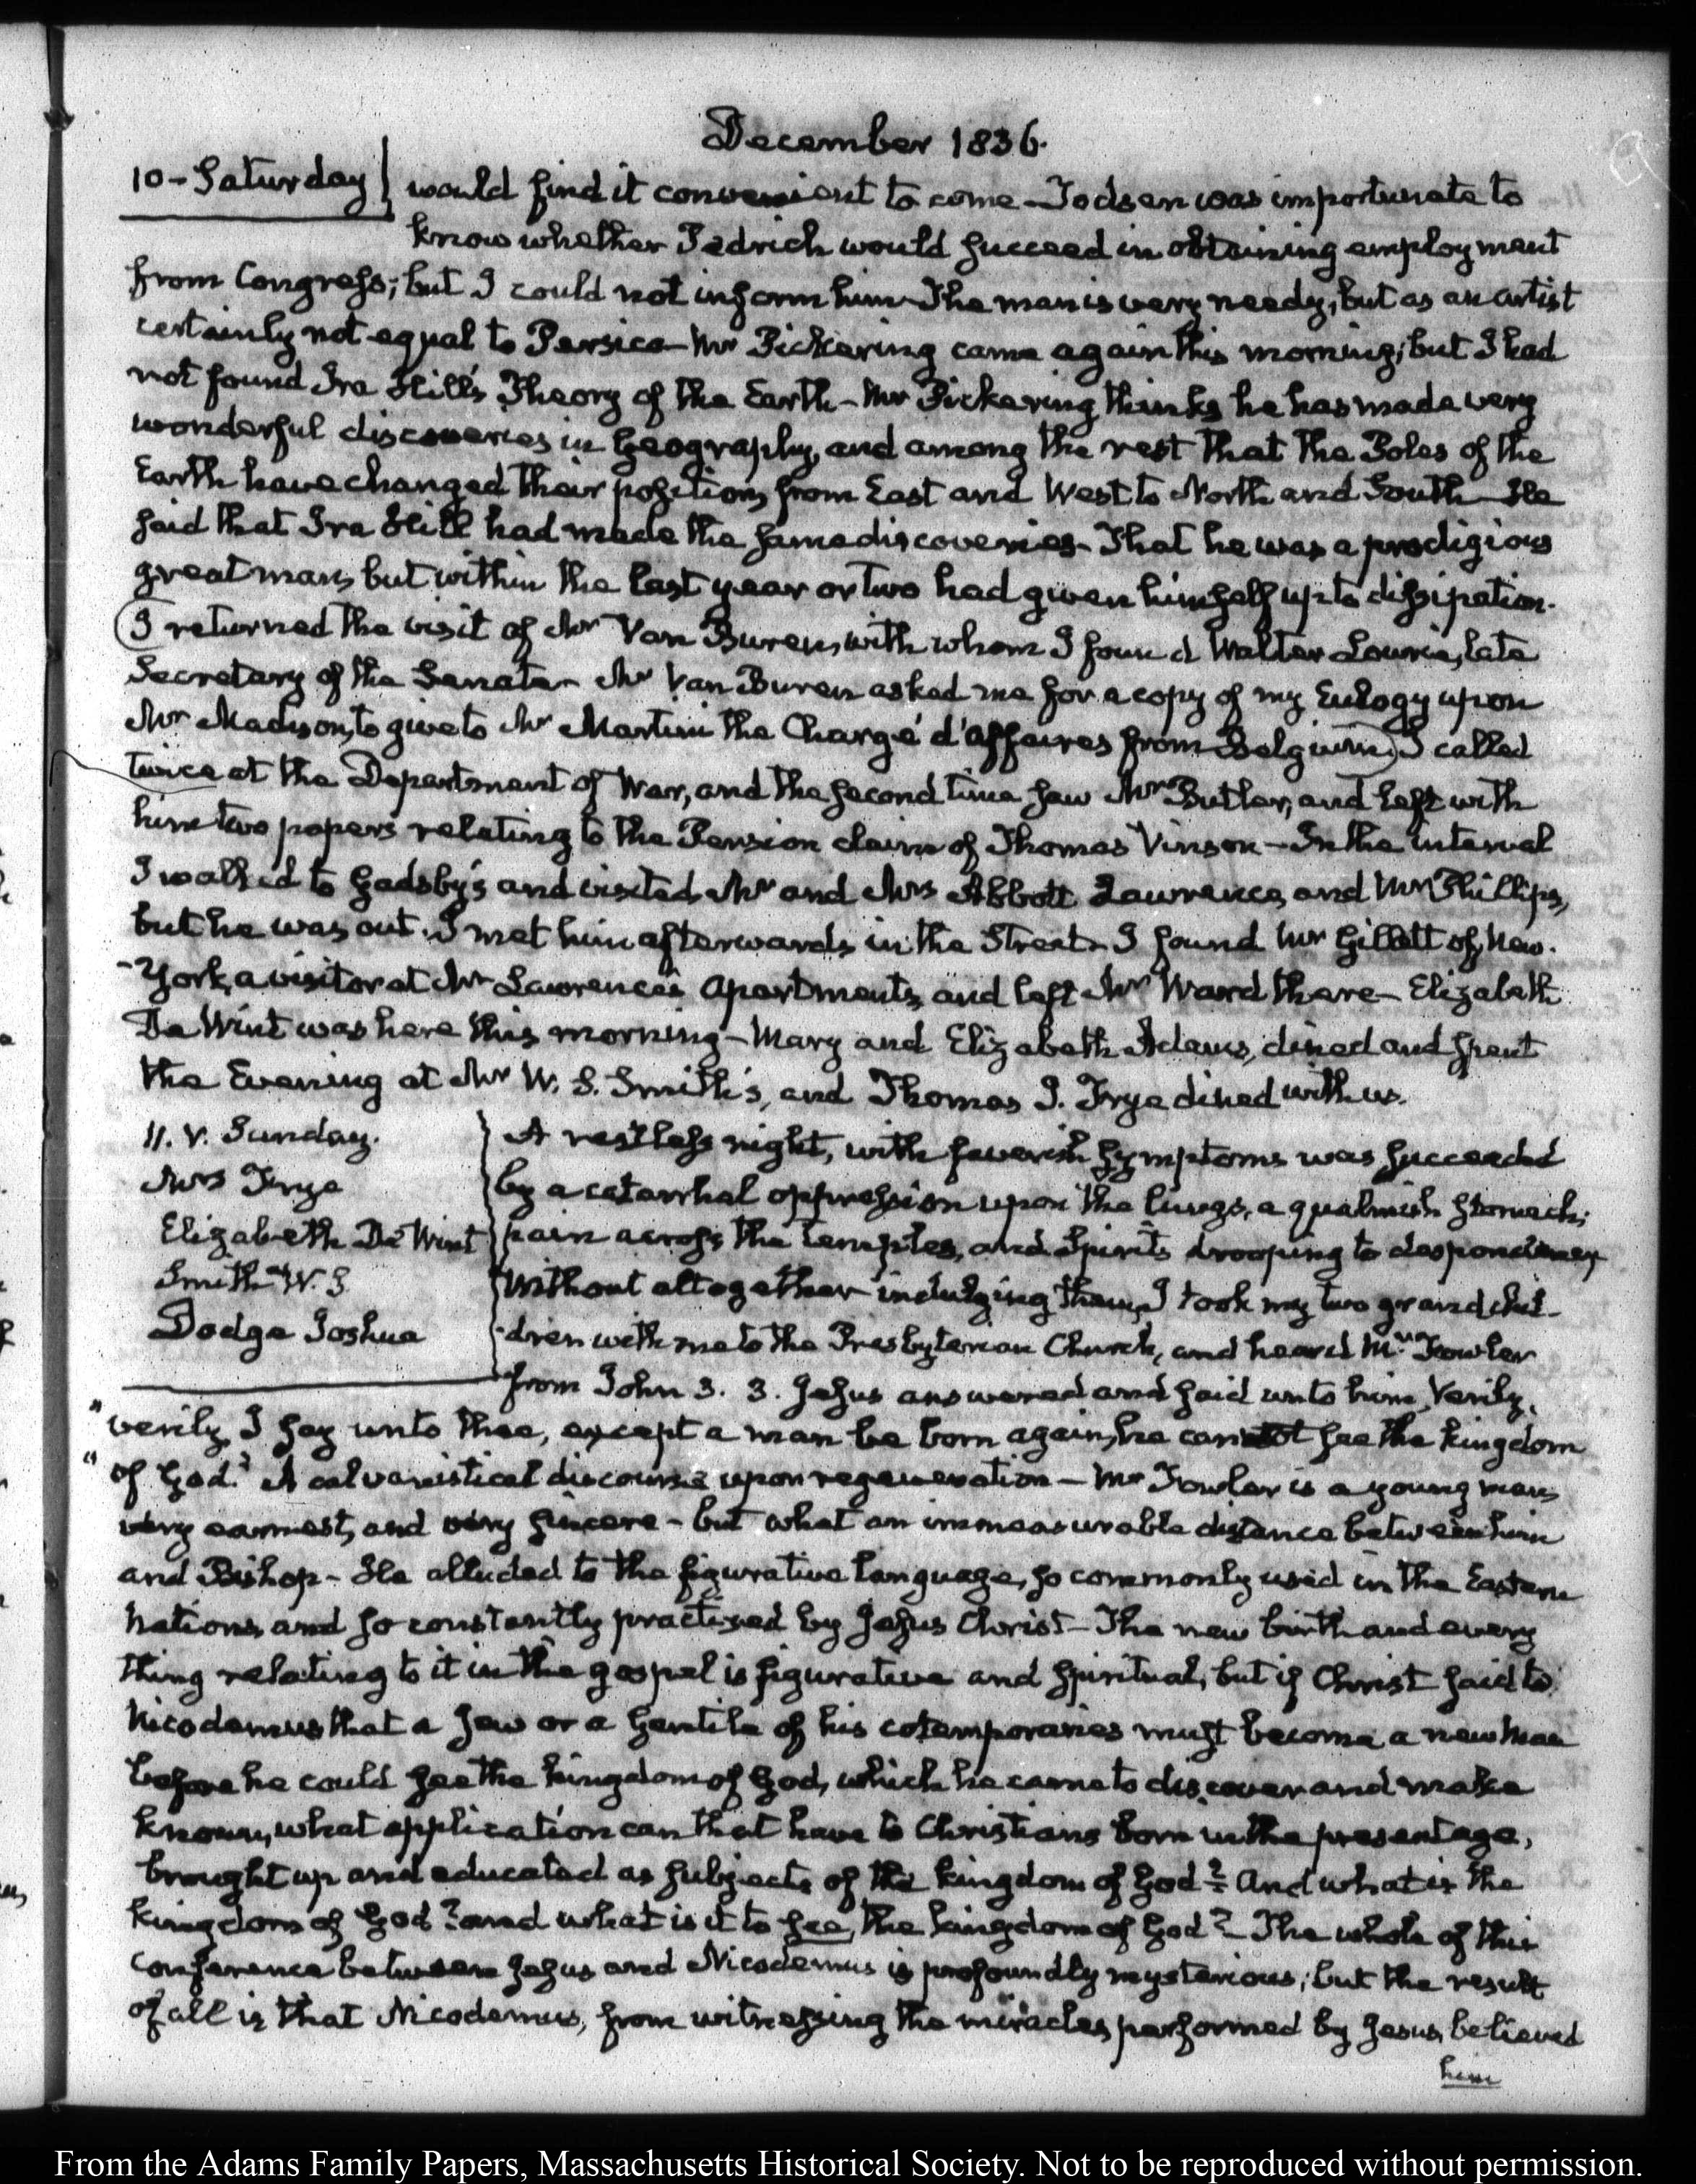 December 1836.
10 - Saturday } would find it convenient to come - Todsen was importunate to
know whether Pedrich would succeed in obtaining employment
from Congress; but I could not inform him - The man is very needy, but as an artist
certainly not equal to Persico - Mr Pickering came again this morning; but I had
not found Ira Hill's Theory of the Earth - Mr Pickering thinks he has made very
wonderful discoveries in Geography, and among the rest that the Poles of the
Earth have changed their position, from East and West to North and South - He
said that Ira Hill had made the same discoveries - That he was a prodigious
great man, but within the last year or two had given himself up to dissipation.
I returned the visit of Mr Van Buren, with whom I found Walter Lowrie, late
Secretary of the Senate - Mr Van Buren asked me for a copy of my Eulogy upon
Mr Madison, to give to Mr Martini the Chargé d'affaires from Belgium. I called
twice at the Department of War, and the second time saw Mr Butler, and left with
him two papers relating to the Pension claim of Thomas Vinson - In the interval
I walked to Gadsby's and visited Mr and Mrs Abbott Lawrence, and Mr Phillips,
but he was out. I met him afterwards in the Street - I found Mr Gillett of New-
-York, a visitor at Mr Lawrence's apartments, and left Mr Ward there - Elizabeth
De Wint was here this morning - Mary and Elizabeth Adams, dined and spent
the Evening at Mr W. S. Smith's, and Thomas J. Frye dined with us.
11. V. Sunday. } A restless night, with feverish symptoms was succeeded
Mrs Frye } by a catarrhal oppression upon the lungs, a qualmish stomach;
Elizabeth De Wint } pain across the temples, and Spirits drooping to despondency
Smith W. S } Without altogether indulging them, I took my two grand chil-
Dodge Joshua } -dren with me to the Presbyterian Church, and heard Mr Fowler
from John 3. 3. Jesus answered and said unto him, Verily,
"verily, I say unto thee, except a man be born again, he cannot see the kingdom
"of God." A calvanistical discourse upon regeneration - Mr Fowler is a young man,
very earnest, and very sincere - but what an immeasurable distance between him
and Bishop - He alluded to the figurative language, so commonly used in the Eastern
Nations, and so constantly practised by Jesus Christ - The new birth and every
thing relating to it in the gospel is figurative and spiritual, but if Christ said to
Nicodemus that a Jew or a Gentile of his cotemporaries must become a new man
before he could see the kingdom of God, which he came to discover and make
known, what application can that have to Christians born in the present age,
brought up and educated as subjects of the kingdom of God? And what is the
kingdom of God? and what is it to see, the kingdom of God? - The whole of this
conference between Jesus and Nicodemus is profoundly mysterious; but the result
of all is that Nicodemus, from witnessing the miracles performed by Jesus, believed
him
From the Adams Family Papers, Massachusetts Historical Society. Not to be reproduced without permission.